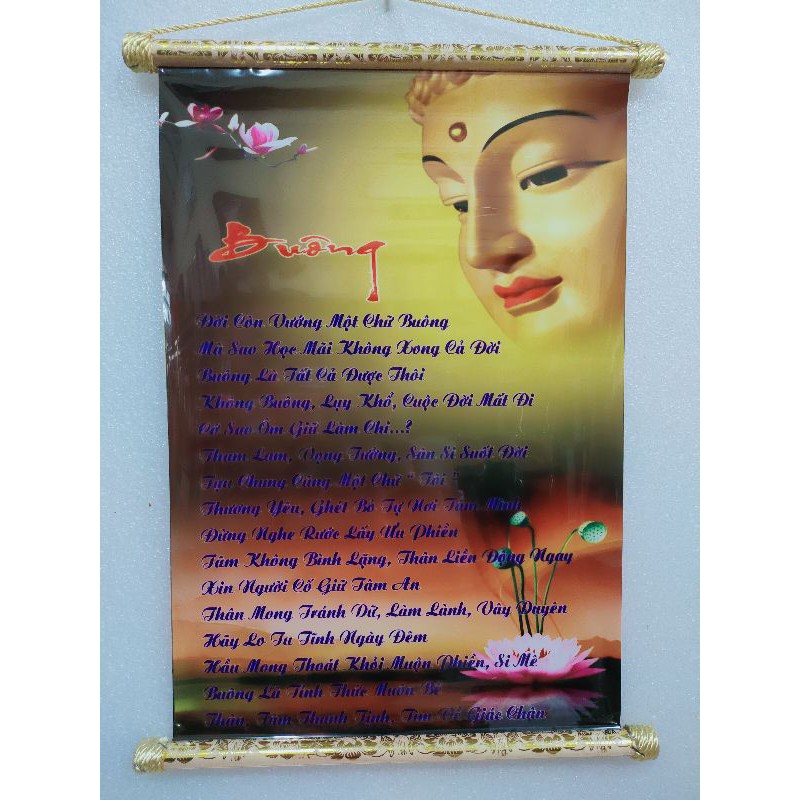 Buông
Đời Còn Vướng Một Chữ Buông
Mà Sao Học Mãi Không Xong Cả Đời
Buông Là Tất Cả Được Thôi
Không Buông, Lụy Khổ, Cuộc Đời Mất Đi
Cớ Sao Ôm Giữ Làm Chi...?
Tham Lam, Vọng Tưởng, Sân Si Suốt Đời
Tựu Chung Cũng Một Chữ " Tôi "
Thương Yêu, Ghét Bỏ Tự Nơi Tâm Mình
Đừng Nghe Rước Lấy Ưu Phiền
Tâm Không Bình Lặng, Thân Liền Động Ngay
Xin Người Cố Giữ Tâm An
Thân Mong Tránh Dữ, Làm Lành, Vây Duyên
Hãy Lo Tu Tĩnh Ngày Đêm
Hầu Mong Thoát Khỏi Muộn Phiền, Si Mê
Buông Là Tỉnh Thức Muôn Bề
Thân, Tâm Thanh Tịnh, Tìm Về Giác Chân